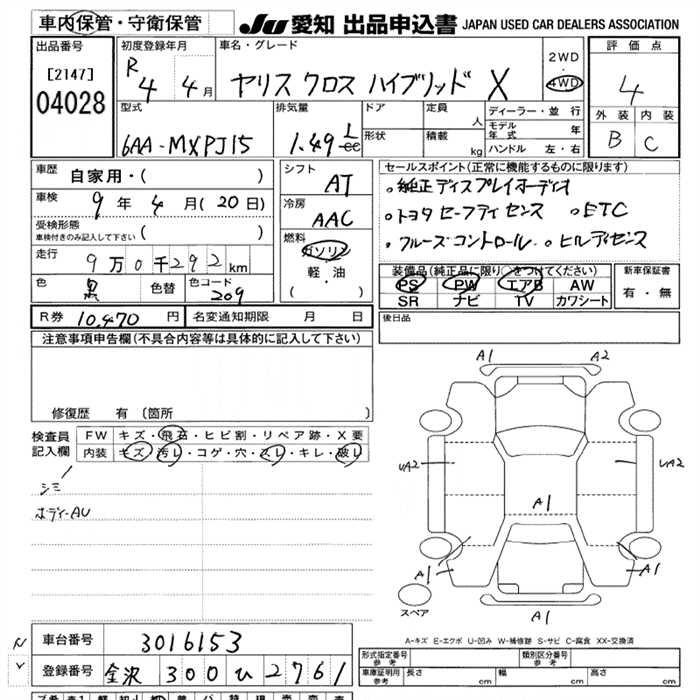 車内保管・守衛保管
JU 愛知 出品申込書 JAPAN USED CAR DEALERS ASSOCIATION
出品番号
[2147]
04028
初度登録年月
R 4 4月
車名・グレード
ヤリス クロス ハイブリッド X
2WD
・
4WD
評価点
4
外装 内装
B C
型式
6AA-MXPJ15
排気量
1.49 L
cc
ドア
形状
定員 人
積載 kg
ディーラー・並行
モデル年式 年
ハンドル 左・右
車歴
自家用・( )
車検
9年4月(20日)
受検形態
車検付きのみ記入して下さい ( )
走行
9万0千292km
色 黒 色替 色コード 209
シフト
AT
冷房
AAC
燃料
ガソリン
軽・油
( )
セールスポイント(正常に機能するものに限ります)
。純正ディスプレイオーディオ
。トヨタセーフティセンス 。ETC
。クルーズコントロール 。ヒルディセンス
装備品(純正品に限り○をつけてください)
PS PW エアB AW
SR ナビ TV カワシート
新車保証書
有・無
R券 10,470円 名変通知期限 月 日
後日品
注意事項申告欄(不具合内容等は具体的に記入して下さい)
修復歴 有(箇所 )
検査員記入欄
FW キズ・飛石・ヒビ割・リペア跡・X要
内装 キズ・汚レ・コゲ・穴・スレ・キレ・破レ
シミ
ボディーAU
A1 A2
UA2 UA2
A1
A1 A1
A1
スペア
A-キズ E-エクボ U-凹み W-補修跡 S-サビ C-腐食 XX-交換済
車台番号 3016153
登録番号 金沢 300 ひ 2761
N
Y
形式指定番号
参考
類別区分番号
参考
車庫証明用
参考
長さ cm 幅 cm 高さ cm